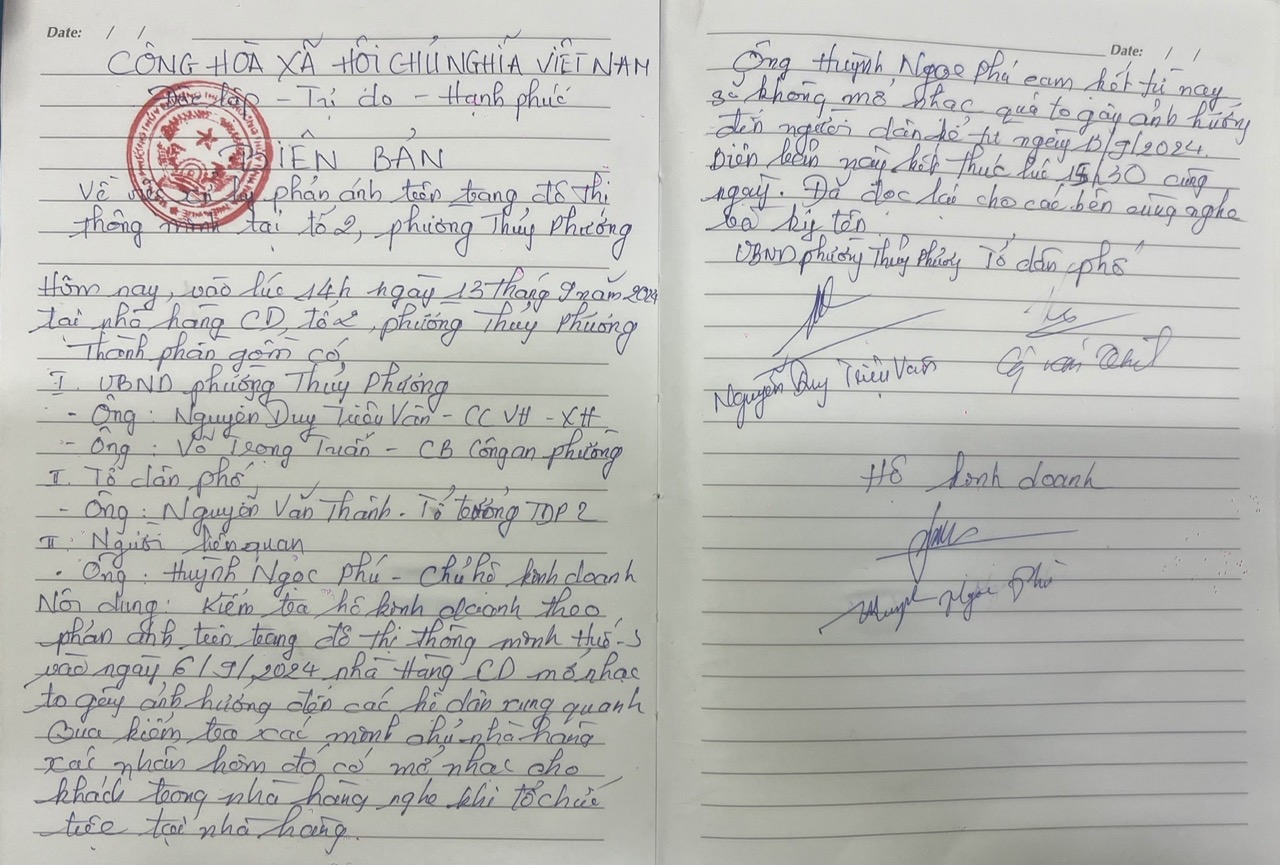 Date: / /
CÔNG HÒA XÃ HÔI CHỦ NGHĨA VIỆT NAM
Độc lập - Tự do - Hạnh phúc
BIÊN BẢN
Về việc xử lý phản ánh trên trang đô thị
thông minh tại tổ 2, phường Thủy Phương
Hôm nay, vào lúc 14h ngày 13 tháng 9 năm 2024
tại nhà hàng CD, tổ 2, phường Thủy Phương
Thành phần gồm có
I. UBND phường Thủy Phương
- Ông: Nguyễn Duy Triều Vân - CC VH - XH
- Ông: Võ Trọng Tuấn - CB Công an phường
II. Tổ dân phố
- Ông: Nguyễn Văn Thành. Tổ trưởng TDP 2
II. Người liên quan
- Ông: Huỳnh Ngọc Phú - Chủ hộ kinh doanh
Nội dung: Kiểm tra hộ kinh doanh theo
phản ánh trên trang đô thị thông minh Huế-S
vào ngày 6/9/2024 nhà Hàng CD mở nhạc
to gây ảnh hưởng đến các hộ dân xung quanh
Qua kiểm tra xác minh chủ nhà hàng
xác nhận hôm đó có mở nhạc cho
khách trong nhà hàng nghe khi tổ chức
tiệc tại nhà hàng.
Date: / /
Ông Huỳnh Ngọc Phú cam kết từ nay
sẽ không mở nhạc quá to gây ảnh hưởng
đến người dân kể từ ngày 13/9/2024.
Biên bản này kết thúc lúc 15h30 cùng
ngày. Đã đọc lại cho các bên cùng nghe
và ký tên
UBND phường Thủy Phương Tổ dân phố
Nguyễn Duy Triều Vân
Hộ kinh doanh
Huỳnh Ngọc Phú